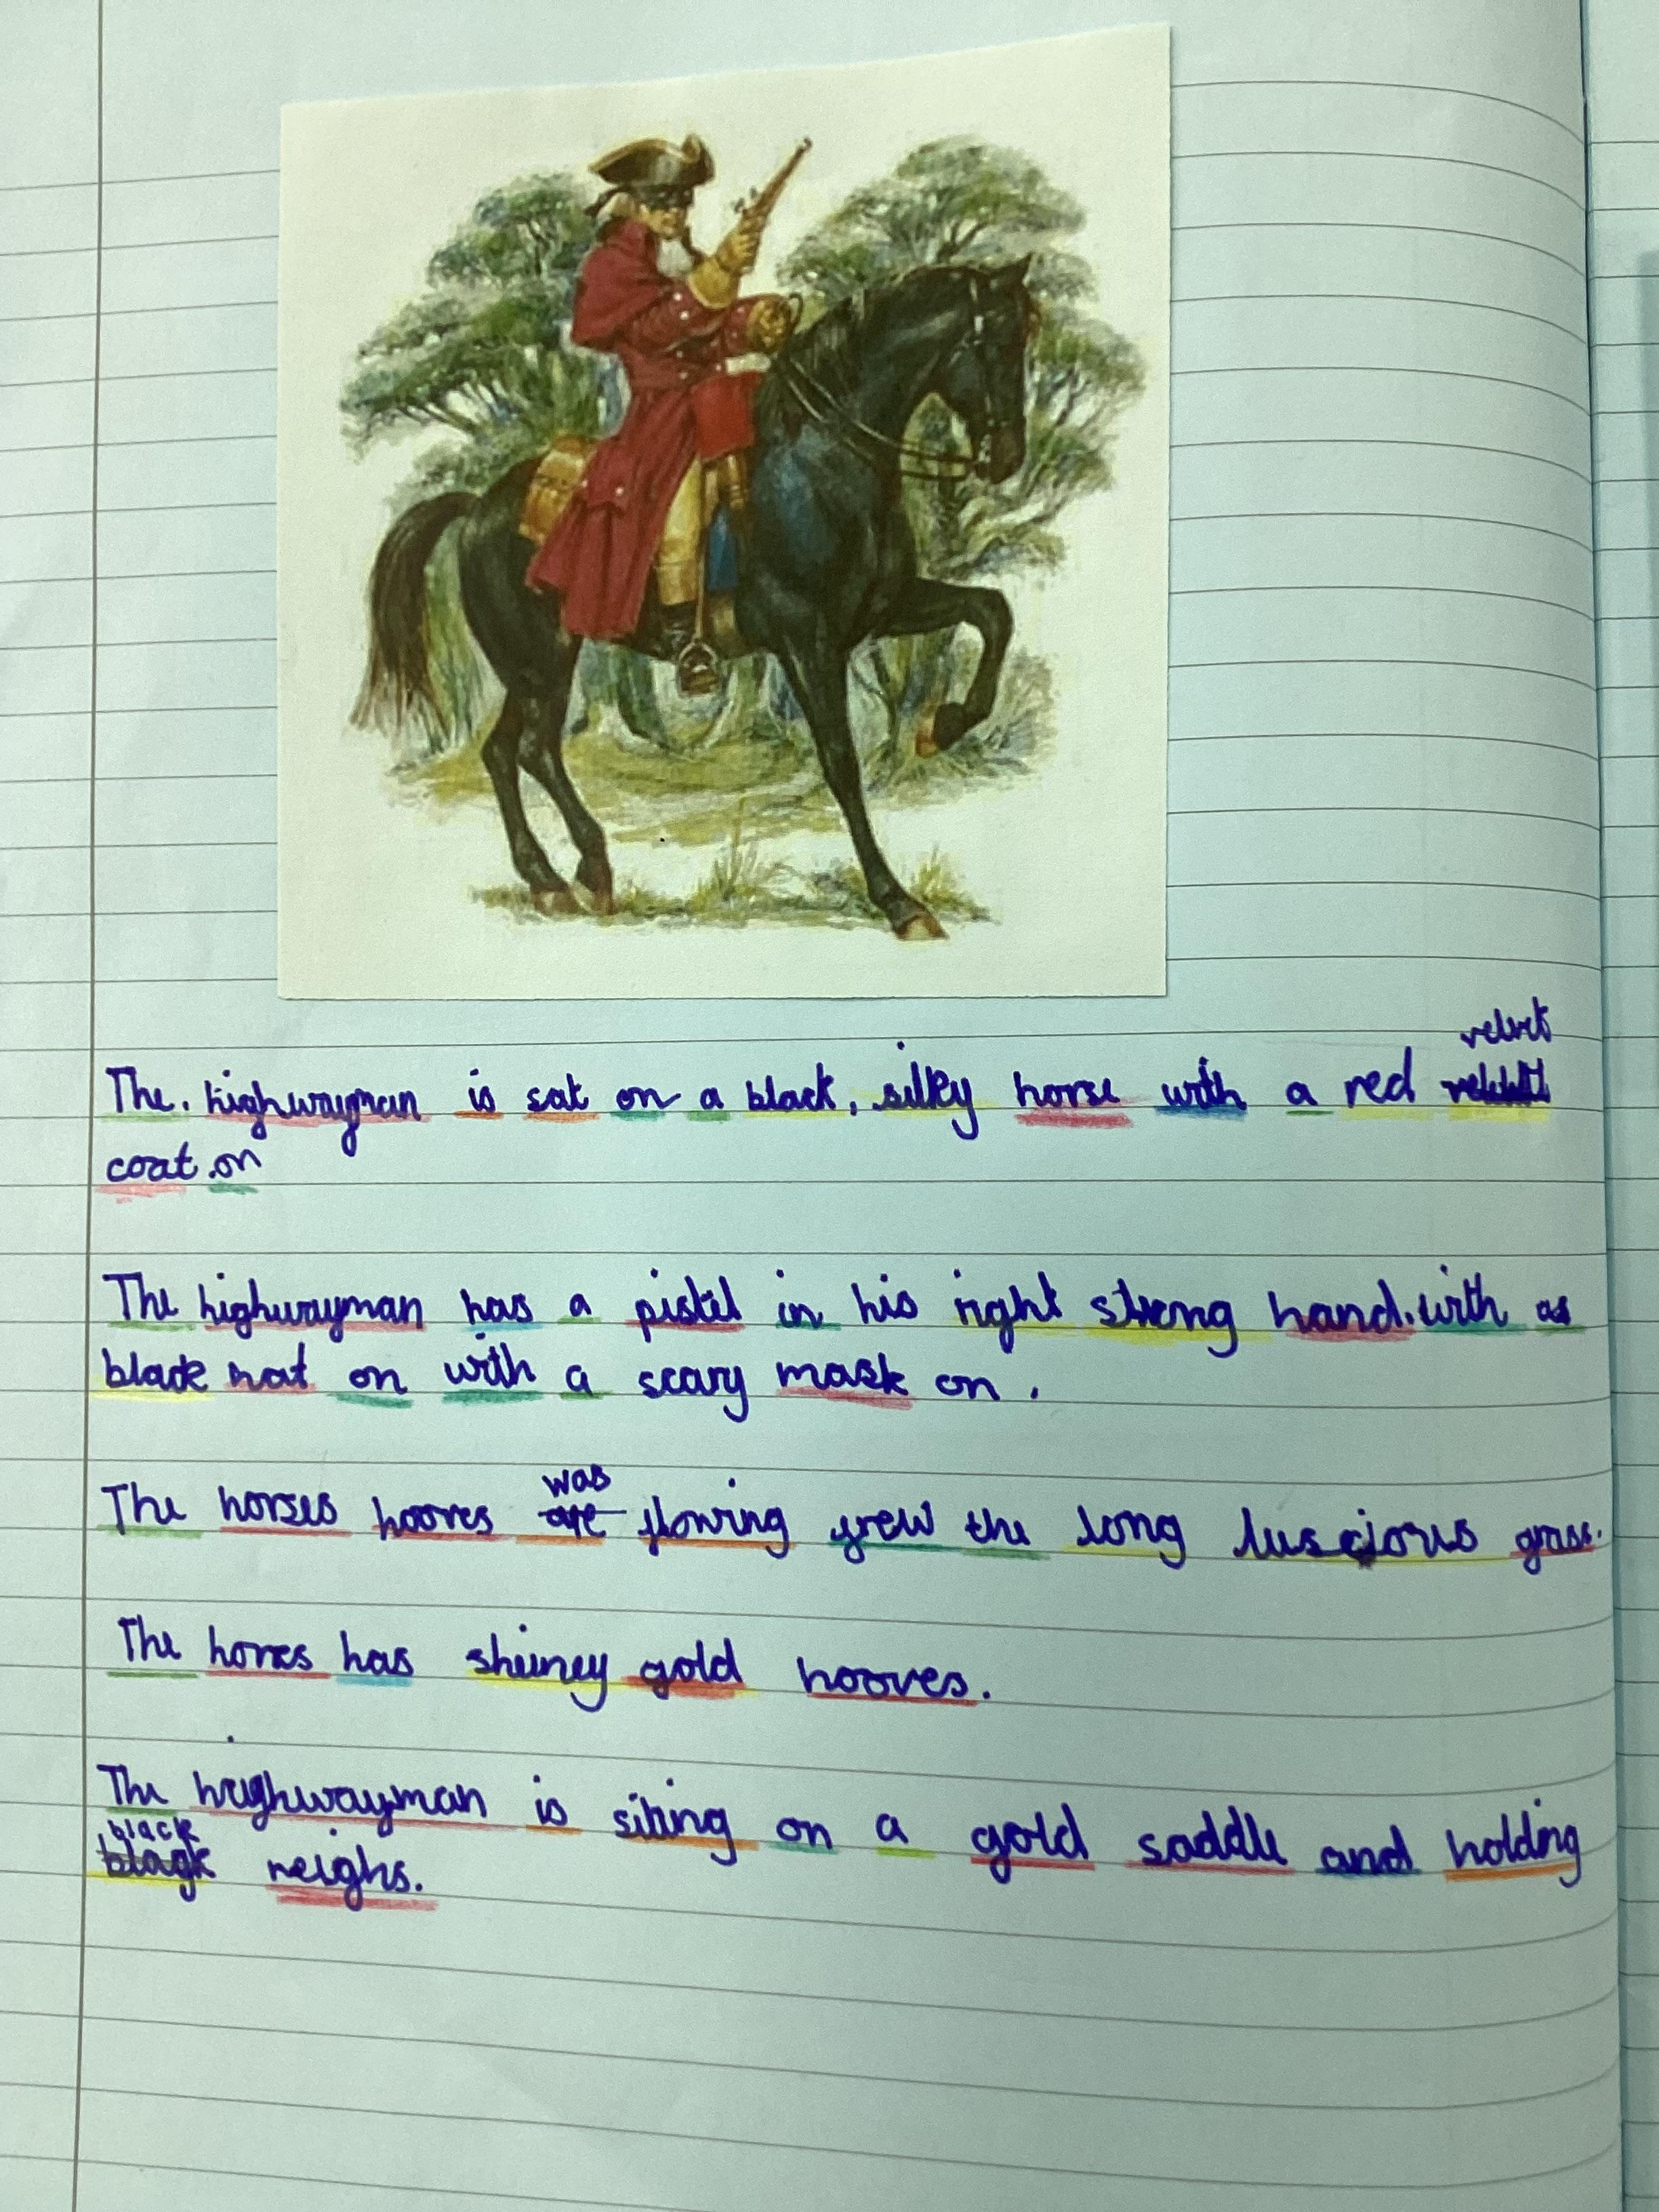 The. highwayman is sat on a black, silky horse with a red velvet
coat.on
The highwayman has a pistil in his right strong hand.with as
black hat on with a scary mask on.
The horses hooves was flowing grew the long luscious grass.
The horses has shiney gold hooves.
The highwayman is siting on a gold saddle and holding
black reighs.